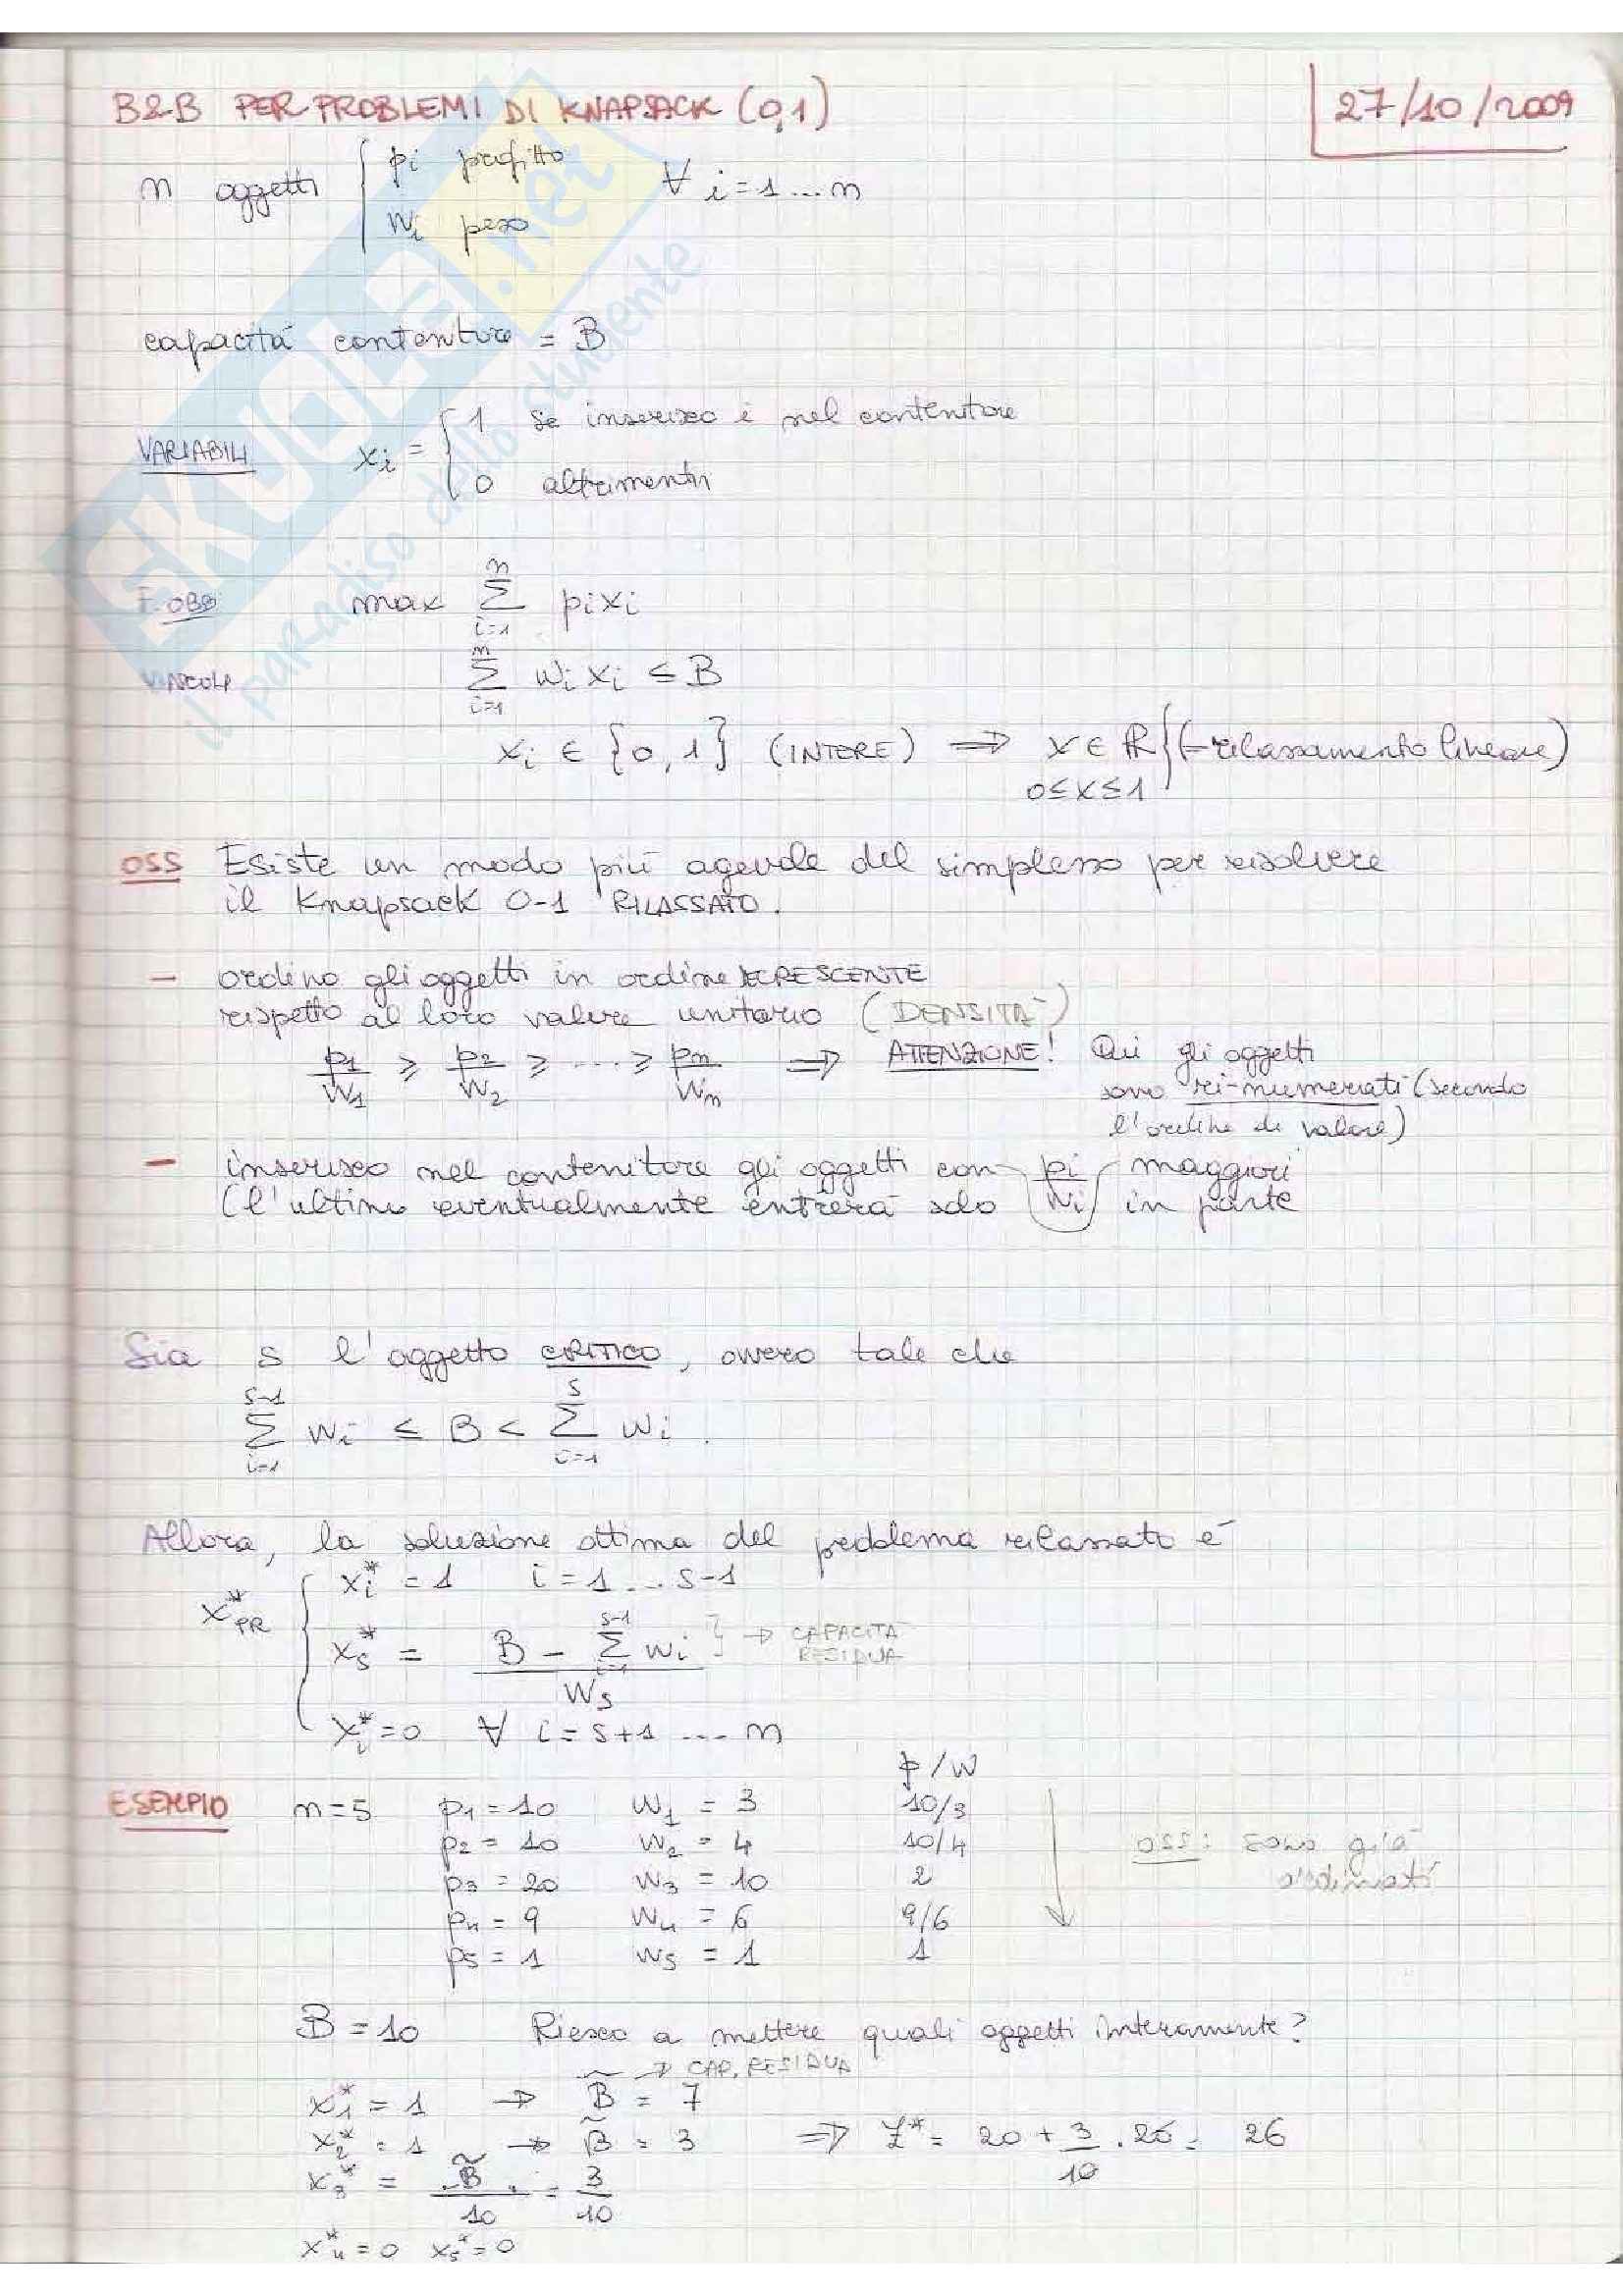 B&B PER PROBLEMI DI KNAPSACK (0,1)
27/10/2009
n oggetti { pi profitto ∀ i=1...n
wi peso
capacità contenitore = B
VARIABILI xi = { 1 se inserisco i nel contenitore
0 altrimenti
F. OBB max Σ_{i=1}^{n} pixi
VINCOLI Σ_{i=1}^{n} wi xi ≤ B
xi ∈ {0,1} (INTERE) ⇒ x ∈ ℝ } (-rilassamento lineare)
0≤x≤1
OSS Esiste un modo più agevole del simplesso per risolvere
il Knapsack 0-1 RILASSATO.
- ordino gli oggetti in ordine DECRESCENTE
rispetto al loro valore unitario (DENSITÀ)
p1/w1 ≥ p2/w2 ≥ ... ≥ pn/wn ⇒ ATTENZIONE! Qui gli oggetti
sono ri-numerati (secondo
l'ordine di valore)
- inserisco nel contenitore gli oggetti con pi/wi maggiori
(l'ultimo eventualmente entrerà solo in parte
Sia s l'oggetto CRITICO, ovvero tale che
Σ_{i=1}^{s-1} wi ≤ B < Σ_{i=1}^{s} wi.
Allora, la soluzione ottima del problema rilassato è
x*PR { xi* = 1 i=1...s-1
xs* = (B - Σ_{i=1}^{s-1} wi) / ws } → CAPACITÀ RESIDUA
xi* = 0 ∀ i=s+1 ... n
p/w
ESEMPIO n=5 p1=10 w1=3 10/3
p2=10 w2=4 10/4 oss: sono già
p3=20 w3=10 2 ordinati
p4=9 w4=6 9/6
p5=1 w5=1 1
B=10 Riesco a mettere quali oggetti interamente?
→ CAP. RESIDUA
x1* = 1 → B̃ = 7
x2* = 1 → B̃ = 3 ⇒ Z* = 20 + 3/10 . 20 = 26
x3* = B̃/10 = 3/10
x4* = 0 x5* = 0
SKUOLA.net
il paradiso dello studente